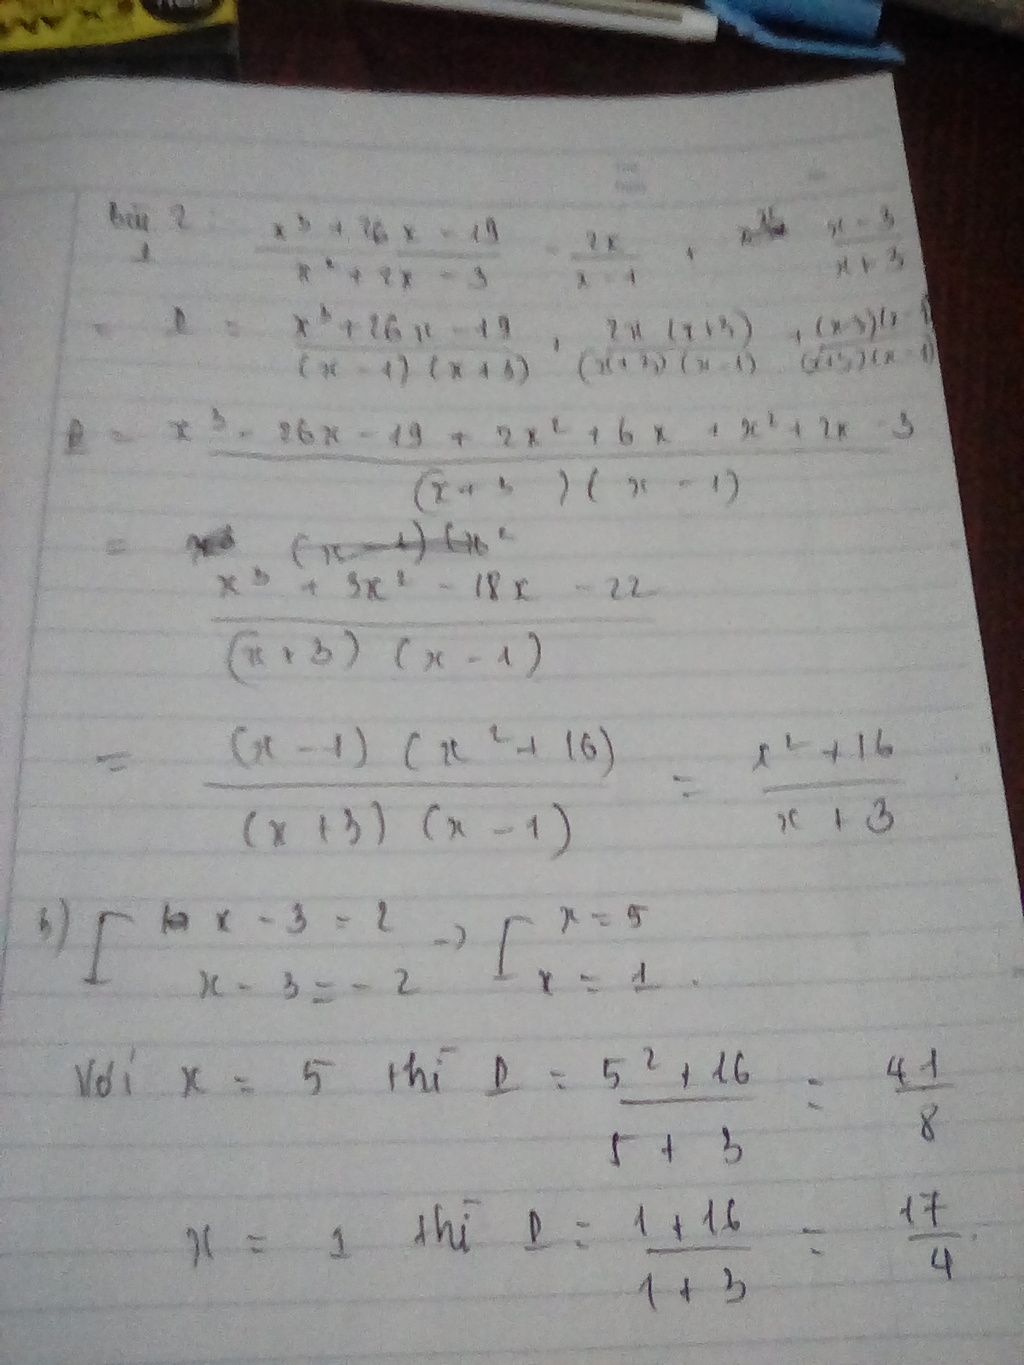 Bài 2:
1
x³ + 26x - 19 / x² + 2x - 3 - 2x / x - 1 + x - 3 / x + 3
= P = x³ + 26x - 19 / (x - 1) (x + 3) - 2x (x + 3) / (x + 3) (x - 1) + (x - 3)(x - 1) / (x + 3)(x - 1)
P = x³ - 26x - 19 + 2x² + 6x + x² + 2x - 3 / (x + 3) (x - 1)
= x³ + 3x² - 18x - 22 / (x + 3) (x - 1)
= (x - 1) (x² + 16) / (x + 3) (x - 1) = x² + 16 / x + 3
b) [ x - 3 = 2 → [ x = 5
x - 3 = - 2 x = 1.
Với x = 5 thì P = 5² + 16 / 5 + 3 = 41 / 8
x = 1 thì P = 1 + 16 / 1 + 3 = 17 / 4.